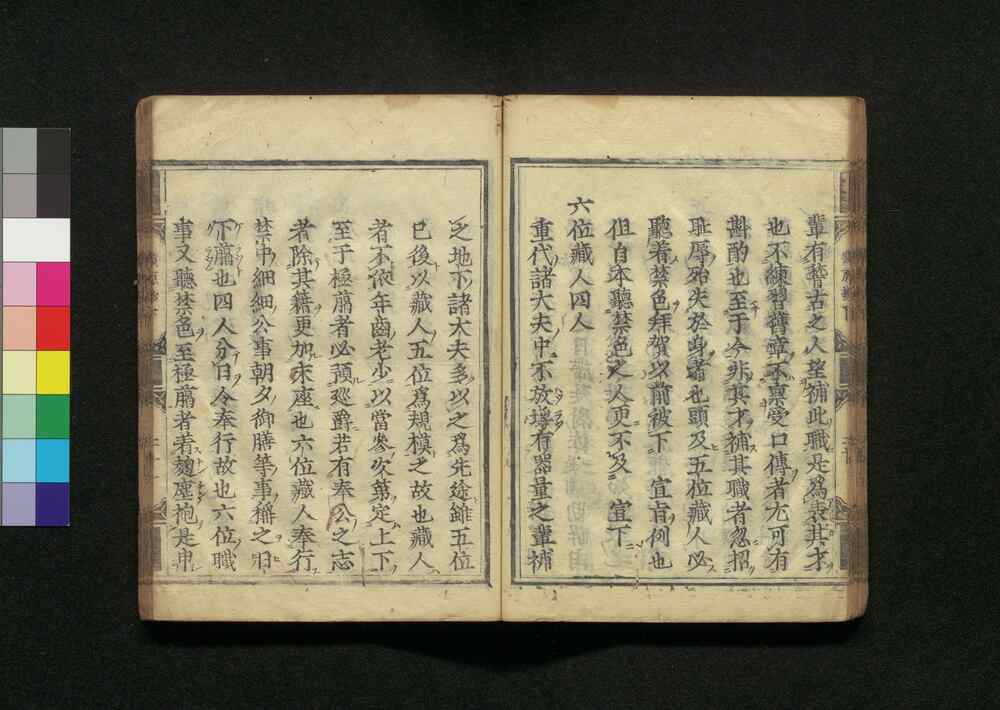 輩有警古之人望補此職是爲表其才
也不練習舊章不稟受口傳者尤可有
斟酌也至于今非其才補其職者忽招
耻辱殆失於身者也頭及五位藏人必
聽着禁色拜賀以前被下 宣旨例也
但自本聽禁色之人更不及 宣下
六位藏人四人
重代諸大夫中不放埒有器量之輩補
之地下諸大夫多以之爲先途雖五位
已後以藏人五位爲規模之故也藏人
者不依年齒老少以當參次第定上下
至于極﨟者必預巡爵若有奉公之志
者除其籍更加末座也六位藏人奉行
禁中細細公事朝夕御膳等事稱之日
下﨟也四人分日令奉行故也六位職
事又聽禁色至極﨟者着麹塵袍是申